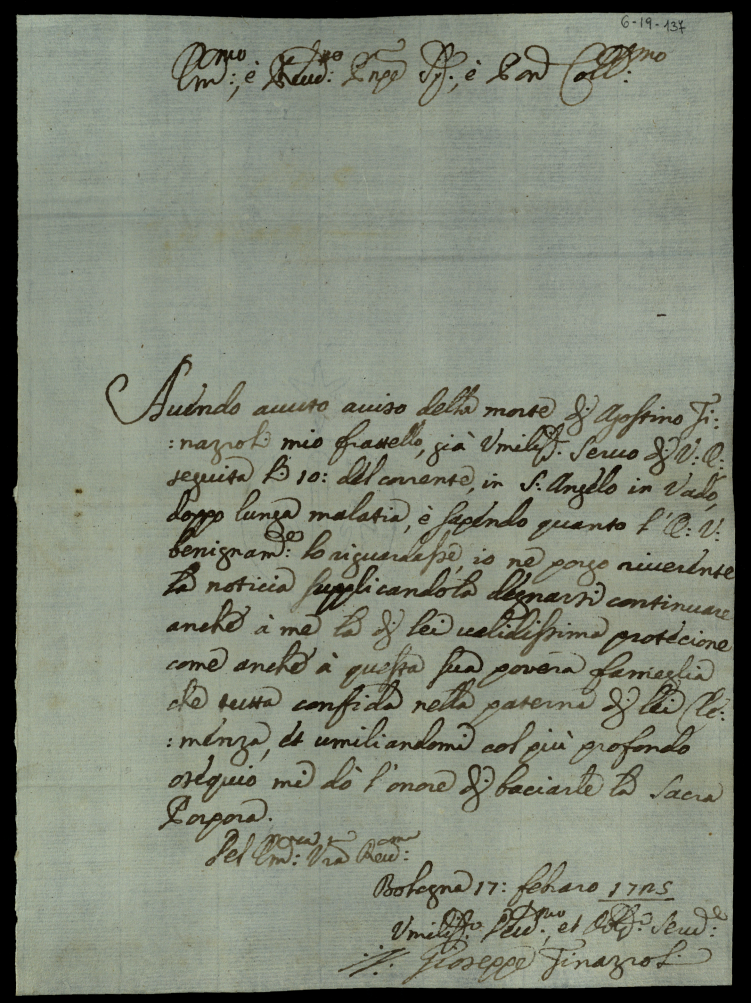 6-19-137
Em:mo, è Reud:mo Prnpe Sig:r, è Pron Coll:mo
Auendo auuto auiso della morte di Agostino Fi:
:nazzoli mio fratello, già Vmiliss:o Seruo di V: E:
seguita li 10: del corrente, in S: Angelo in Vado,
doppo lunga malatia, è sapendo quanto l'E: V:
benignam:e lo riguardasse, io ne porgo riuerente
la noticia supplicandola degnarsi continuare
anche à me la di lei ualidissima protecione
come anche à questa sua pouera fameglia
che tutta confida nella paterna di lei Cle:
:menza, et umiliandomi col più profondo
osequio mi dò l'onore di baciarle la Sacra
Porpora.
Del Em:za Vra Reud:ma
Bologna 17: febraro
Vmiliss:o Deud:mo, et Obl:o Seru:e
Gioseppe Finazzoli